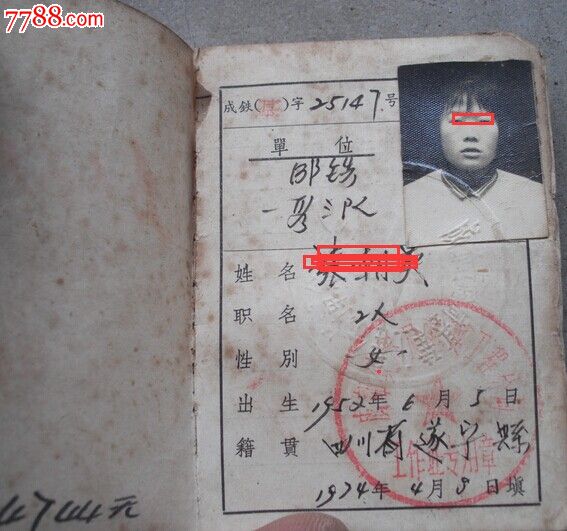 7788.com
成鉄( )字25147号
單位
邱鉄
一段三队
姓名
职名 工人
性別 女
出生 1952年6月5日
籍貫 四川省遂宁縣
1974年4月9日填
工作证专用章
4744元